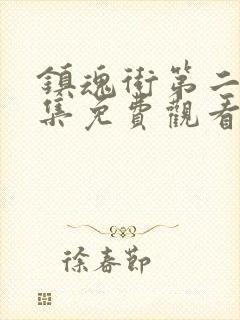 鎮魂街第二
集免費觀看
徐春節